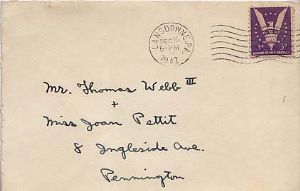 LANSDOWNE, PA.
1942
3¢
Mr. Thomas Webb III
+
Miss Joan Pettit
8 Ingleside Ave.
Pennington